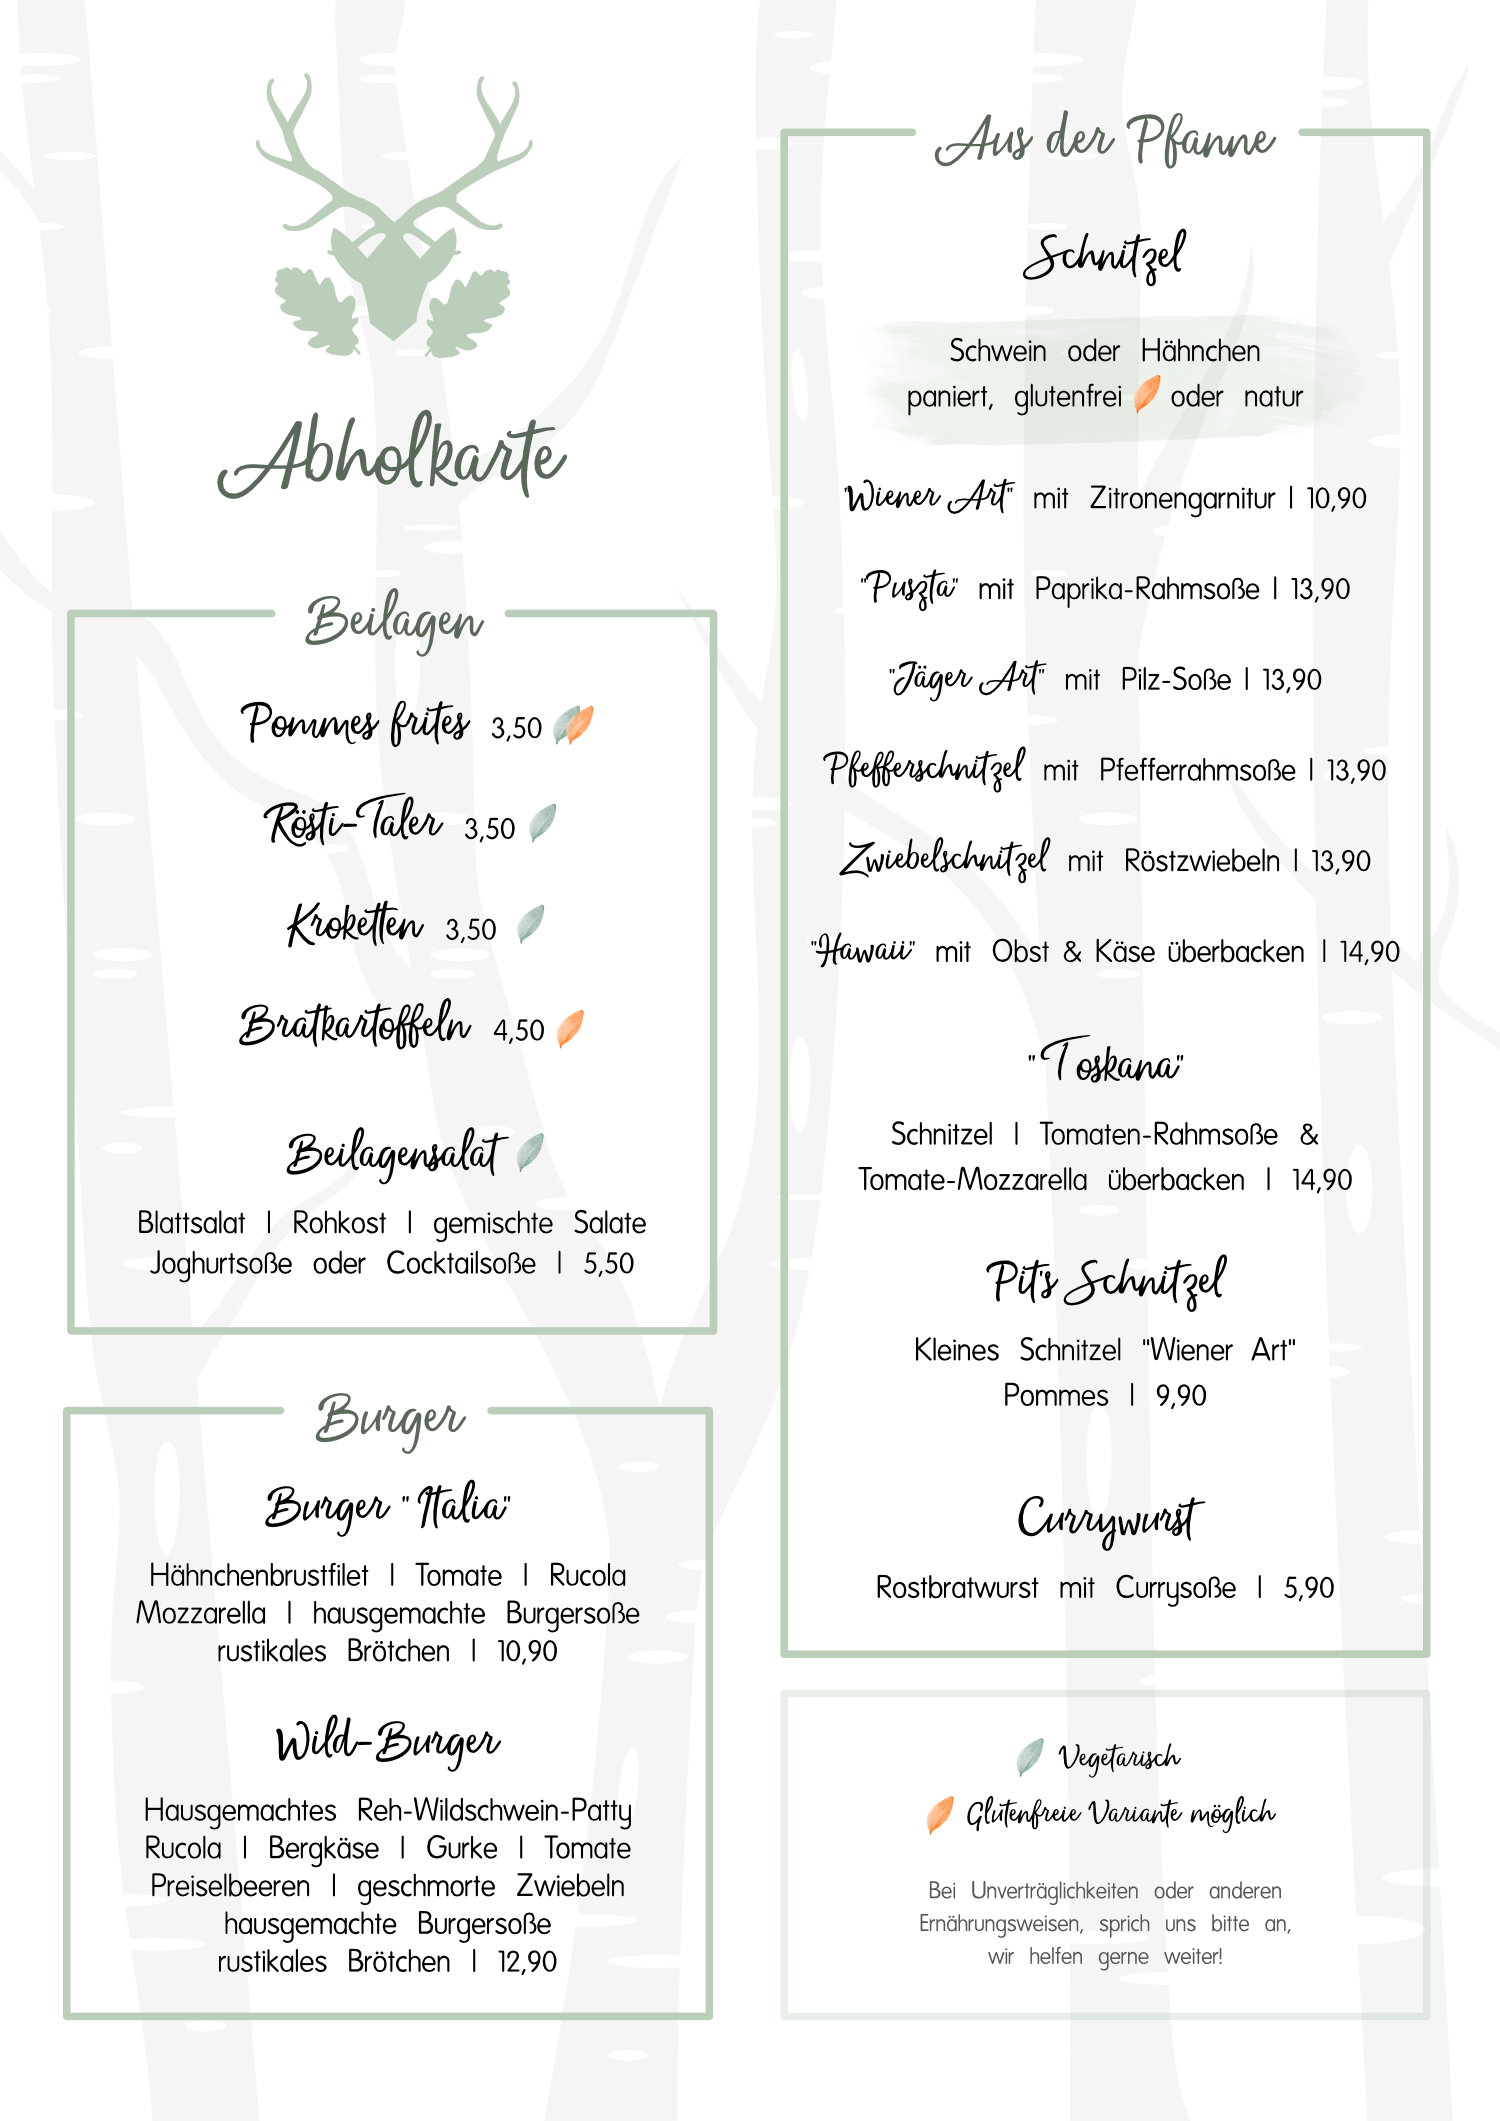 Abholkarte
Beilagen
Pommes frites 3,50
Rösti-Taler 3,50
Kroketten 3,50
Bratkartoffeln 4,50
Beilagensalat
Blattsalat | Rohkost | gemischte Salate
Joghurtsoße oder Cocktailsoße | 5,50
Burger
Burger "Italia"
Hähnchenbrustfilet | Tomate | Rucola
Mozzarella | hausgemachte Burgersoße
rustikales Brötchen | 10,90
Wild-Burger
Hausgemachtes Reh-Wildschwein-Patty
Rucola | Bergkäse | Gurke | Tomate
Preiselbeeren | geschmorte Zwiebeln
hausgemachte Burgersoße
rustikales Brötchen | 12,90
Aus der Pfanne
Schnitzel
Schwein oder Hähnchen
paniert, glutenfrei oder natur
"Wiener Art" mit Zitronengarnitur | 10,90
"Puszta" mit Paprika-Rahmsoße | 13,90
"Jäger Art" mit Pilz-Soße | 13,90
Pfefferschnitzel mit Pfefferrahmsoße | 13,90
Zwiebelschnitzel mit Röstzwiebeln | 13,90
"Hawaii" mit Obst & Käse überbacken | 14,90
"Toskana"
Schnitzel | Tomaten-Rahmsoße &
Tomate-Mozzarella überbacken | 14,90
Pit's Schnitzel
Kleines Schnitzel "Wiener Art"
Pommes | 9,90
Currywurst
Rostbratwurst mit Currysoße | 5,90
Vegetarisch
Glutenfreie Variante möglich
Bei Unverträglichkeiten oder anderen
Ernährungsweisen, sprich uns bitte an,
wir helfen gerne weiter!